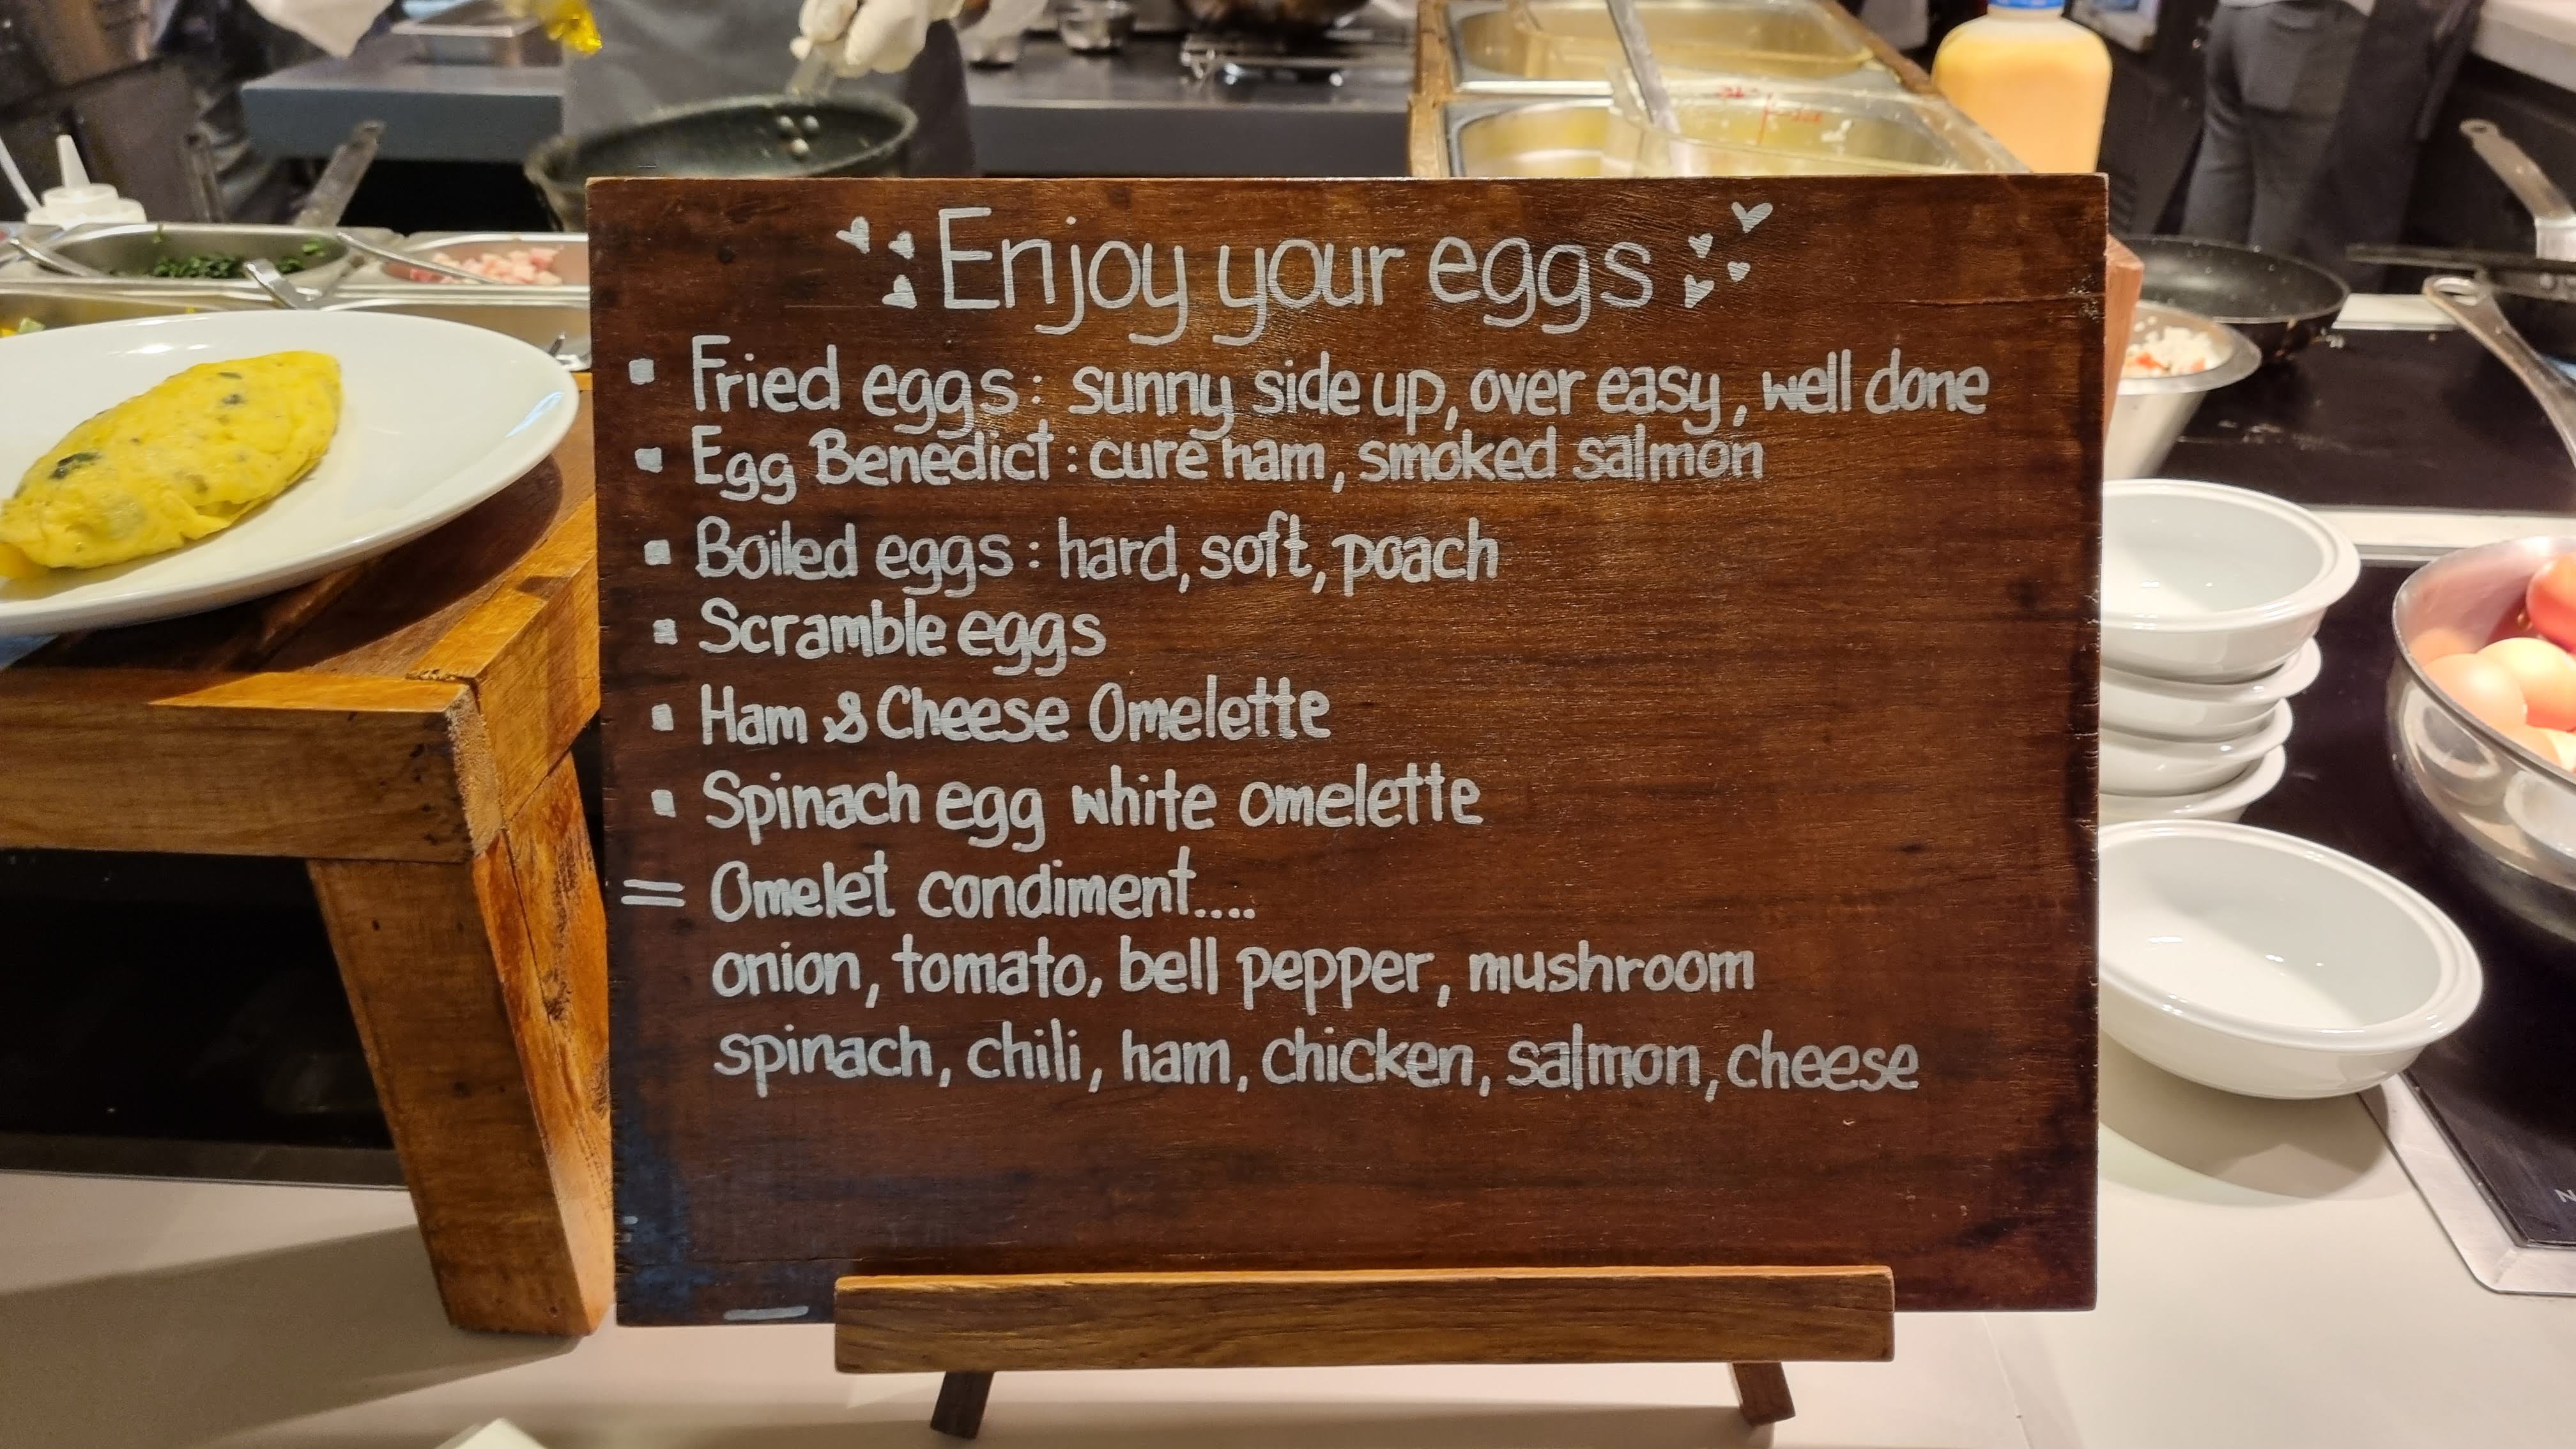 Enjoy your eggs
Fried eggs: sunny side up, over easy, well done
Egg Benedict: cure ham, smoked salmon
Boiled eggs: hard, soft, poach
Scramble eggs
Ham & Cheese Omelette
Spinach egg white omelette
= Omelet condiment....
onion, tomato, bell pepper, mushroom
spinach, chili, ham, chicken, salmon, cheese